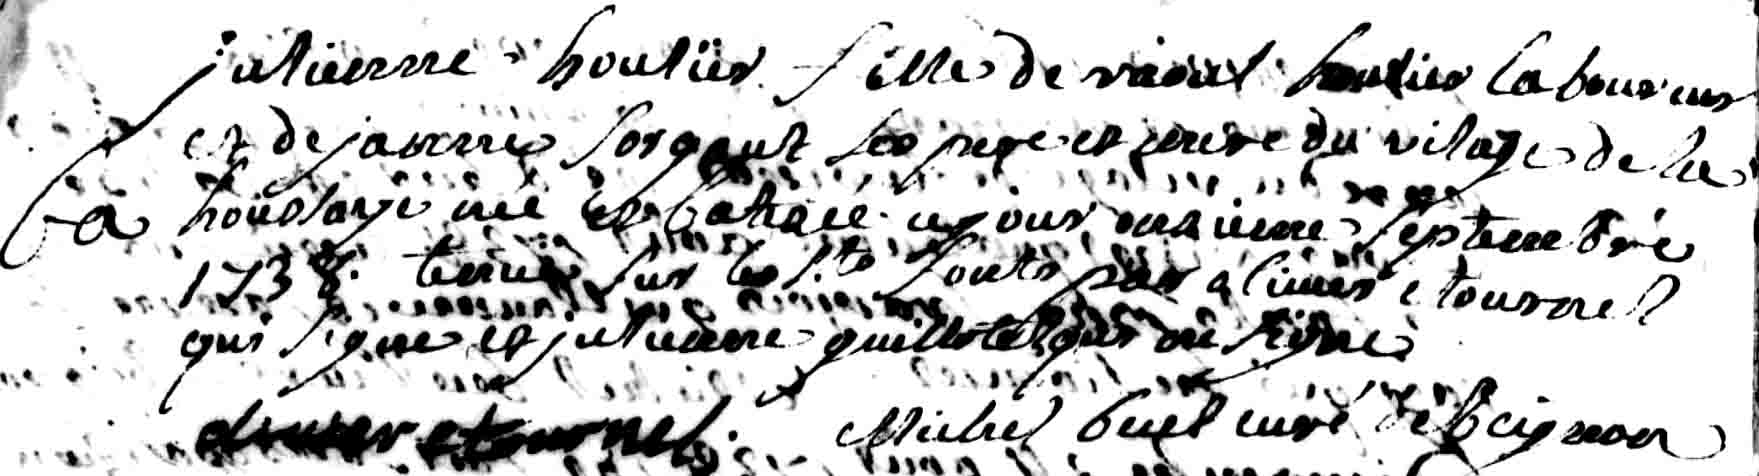 julienne houlier fille de raoul houlier laboureur
et de janne sorgeut ses pere et mere du vilage de la
Ba houssaye né et batisée ce jour onsieme septembre
1738. tenue sur les s.ts fonts par olivier etournel
qui signe et julienne guillotel qui ne signe
olivier etournel. Michel buel curé de beignon